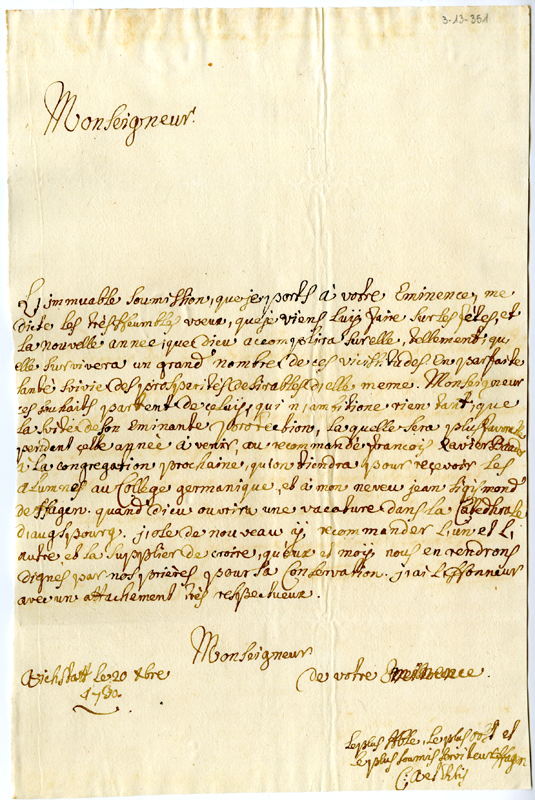 3-13-361
Monseigneur.
L'immuable soumission, que je ports à votre Eminence, me
dicte les très humbles voeux, que je viens Luij faire sur les fêtes, et
la nouvelle année; que Dieu accomplira sur elle, tellement; qu
elle survivera un grand nombre de ces vicissitudes en parfaite
santé suivie des prosperités desirables d'elle meme. Monseigneur
ces souhaits partent de celuis, qui n'ambitione rien tant, que
la de son eminante protection, la quelle sera plus
pendent cette année à venir, au recommandé françois Xavier
à la congregation prochaine, qu'on tiendra pour reçevoir les
alumnes au College germanique, et à mon neveu jean sigismond
de Hagen. quand Dieu ouvrira une vacature dans la Catedhrale
d'augspourg. j'ose de nouveau aÿ recommander L'un et L'
autre et la supplier de croire, qu'eux et moij nous en rendrons
dignes par nos prières pour sa Conservation. j'ai L'honneur
avec un attachement très respectueux.
Monseigneur
de votre Eminence.
Eichstatt le 20 Xbre
1730.
Le plus , le plus et
le plus soumis serviteur Hagen